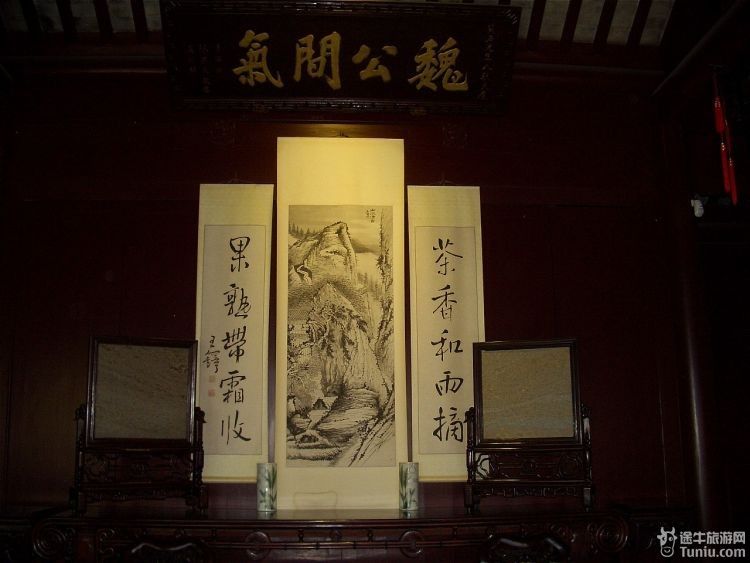 魏公間氣
茶香和雨摘
果熟帶霜收
王鐸
途牛旅游网
Tuniu.com